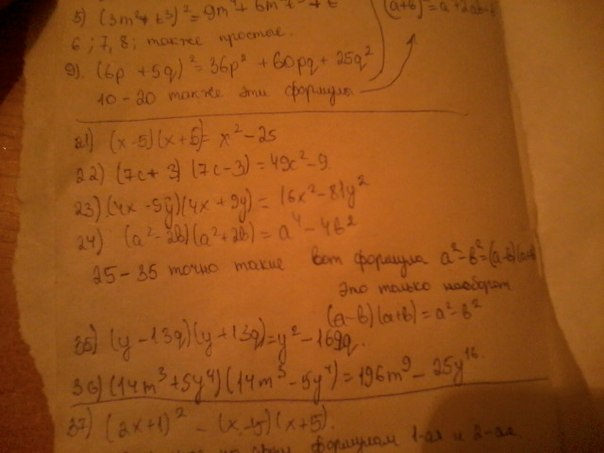 5) (3m² + b³)² = 9m⁴ + 6m²
(a+b)² = a²+2ab+b
6; 7, 8; также простое.
9). (6p + 5q)² = 36p² + 60pq + 25q²
10 - 20 также эти формулы
21) (x-5)(x+5) = x² - 25
22) (7c + 3) (7c - 3) = 49c² - 9
23) (4x - 9y)(4x + 9y) = 16x² - 81y²
24) (a² - 2b)(a² + 2b) = a⁴ - 4b²
25 - 35 точно такие вот формула a² - b² = (a-b)(a+b)
Это только наоборот
(a-b)(a+b) = a² - b²
35) (y - 13q)(y + 13q) = y² - 169q.
36) (14m³ + 5y⁴) (14m³ - 5y⁴) = 196m⁹ - 25y¹⁶.
37) (2x+1)² - (x-y)(x+5).
формулам 1-ая и 2-ая